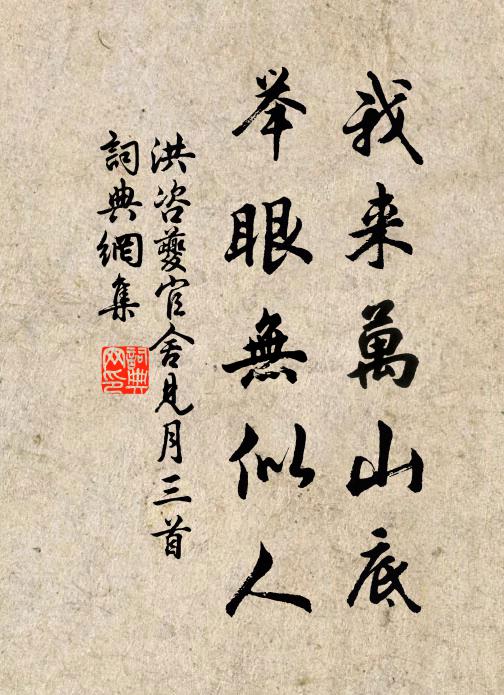 我来萬山底
举眼無似人
洪咨夔官舍見月三首
詞典網集
詞典
网印